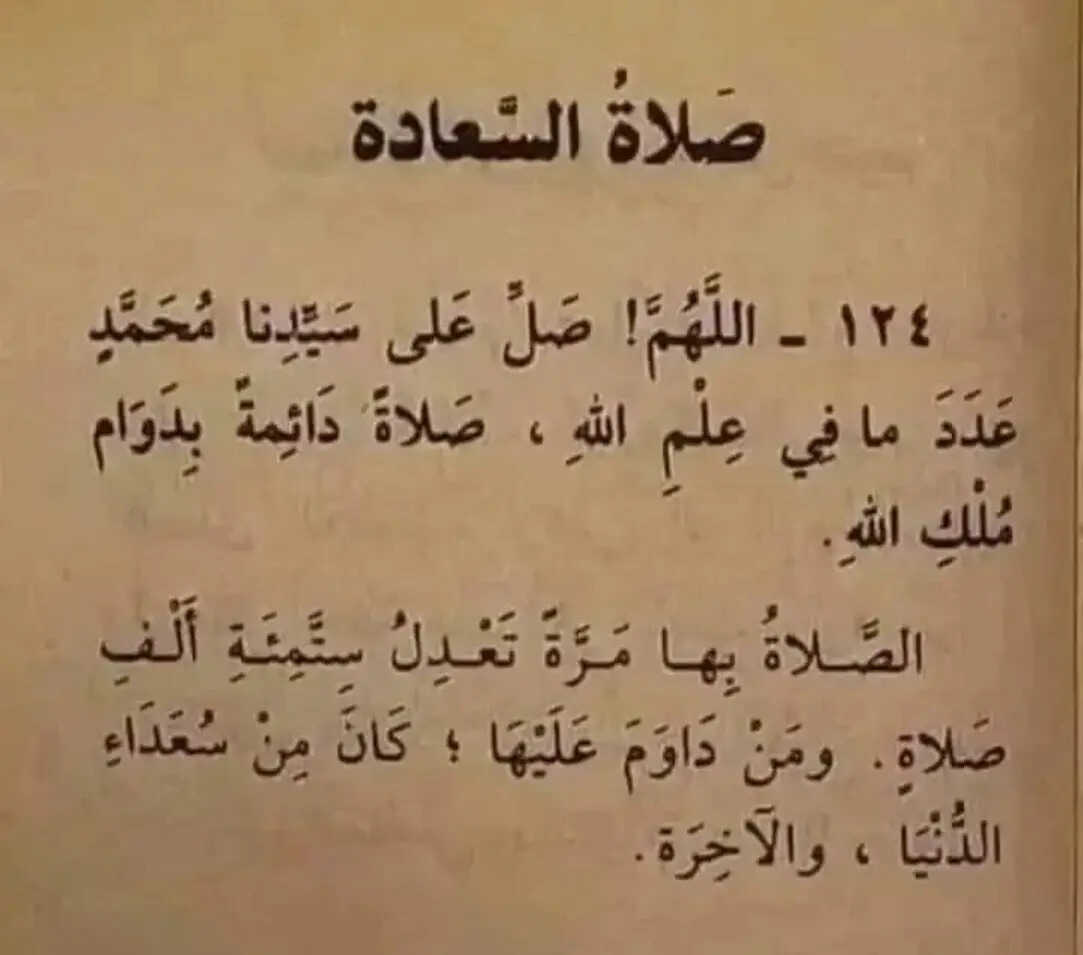 صَلاةُ السَّعادة
١٢٤ ـ اللَّهُمَّ! صَلِّ عَلى سَيِّدِنا مُحَمَّدٍ
عَدَدَ ما فِي عِلْمِ اللهِ ، صَلاةً دَائِمةً بِدَوَام
مُلْكِ اللهِ.
الصَّلاةُ بِها مَرَّةً تَعْدِلُ سِتَّمِئَةِ أَلْفِ
صَلاةٍ. ومَنْ دَاوَمَ عَلَيْهَا ؛ كَانَ مِنْ سُعَدَاءِ
الدُّنْيَا ، والآخِرَة.